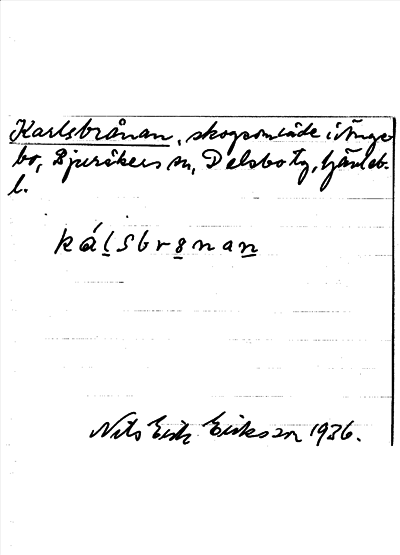 Karlsbrånan, skogsområde i Änge-
bo, Bjuråkers sn, Delsbo tg, Gävleb.
l.
kálsbrɜnan
Nils Erik Eriksson 1936.